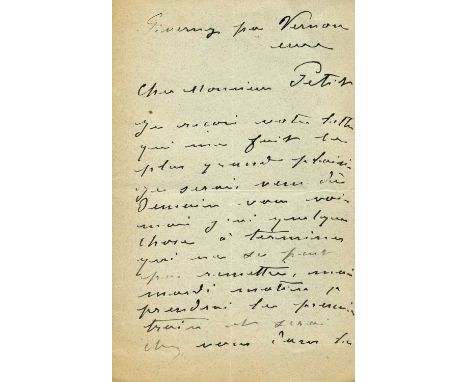 Giverny par Vernon
eure
Cher Monsieur Petit
Je reçois votre lettre
qui me fait le
plus grand plaisir
je serais venu dès
Demain vous voir
mais j'ai quelque
chose à terminer
qui ne se peut
pas remettre, mais
mardi matin je
prendrai le premier
train et serai
chez vous dans la